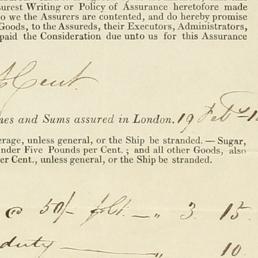 surest Writing or Policy of Assurance heretofore made
o we the Assurers are contented, and do hereby promise
Goods, to the Assureds, their Executors, Administrators,
paid the Consideration due unto us for this Assurance
Cent.
nes and Sums assured in London. 19 Feb
erage, unless general, or the Ship be stranded.—Sugar,
nder Five Pounds per Cent.; and all other Goods, also
er Cent., unless general, or the Ship be stranded.
@ 50/- — " 3 15
duty — " 10